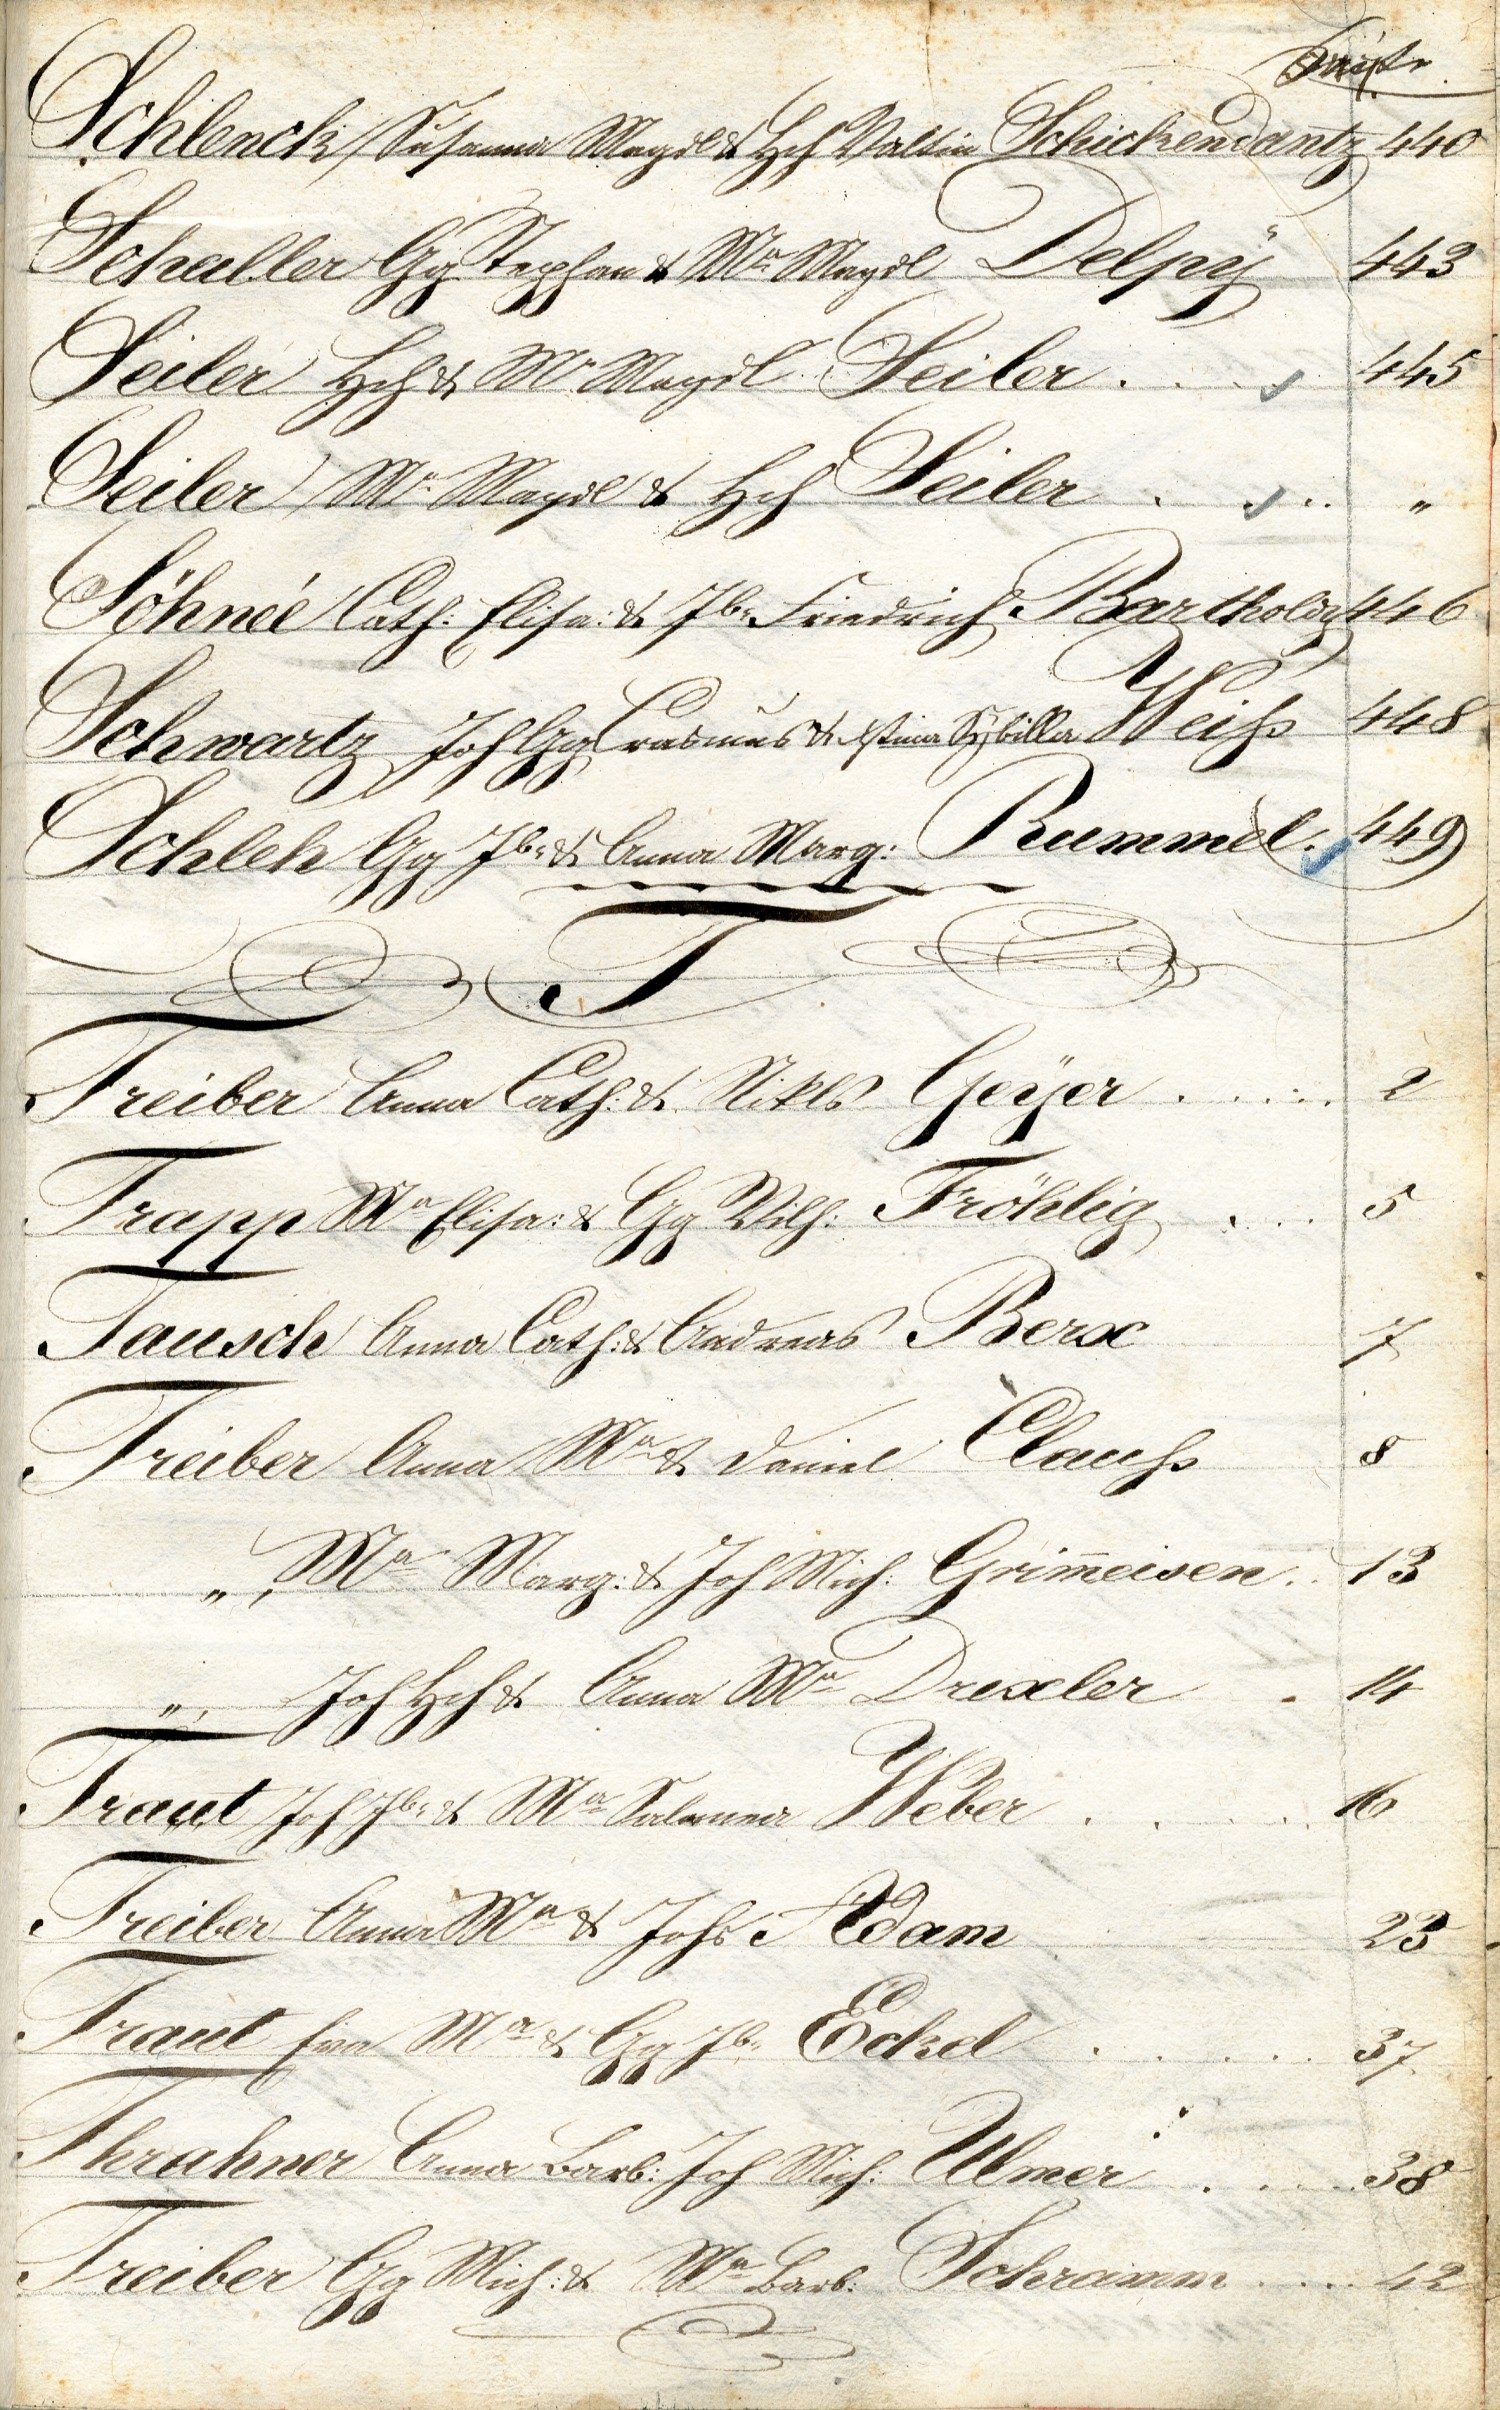 Seite
Schlenck Susanna Magdl & Hch Valtin Schickendantz 440
Schaller Gg Stephan & Ma Magdl Delpÿ 443
Seiler Hch & Ma Magdl Seiler . . . 445
Seiler Ma Magdl & Hch Seiler . . . "
Söhneé Cath: Elisa: & Jb. Friedrich Bartholoy 446
Schwartz Joh Gg Erasmus & Sybilla Weiß 448
Schleh Gg Jb. & Anna Marg: Rummel. 449
T
Treiber Anna Cath: & Nikls Geÿer . . . . . 2
Trapp Ma Elisa: & Gg Wilh: Fröhlig . . . . 5
Tausch Anna Cath: & Andreas Berx 7
Treiber Anna Ma & Daniel Clauß 8
" , Ma Marg: & Joh Mich: Grim̅eisen . . 13
" , Joh Hch & Anna Ma Drexler . 14
Traut Joh Jb. & Ma Salomea Weber . . . . . 16
Treiber Anna Ma & Johs Adam 23
Traut Eva Ma & Gg Jb. Eckel . . . . . 37
Thrahner Anna Barb: Joh Mich: Ulmer . . . . 38
Treiber Gg Mich: & Ma Barb: Schramm . . . . 42